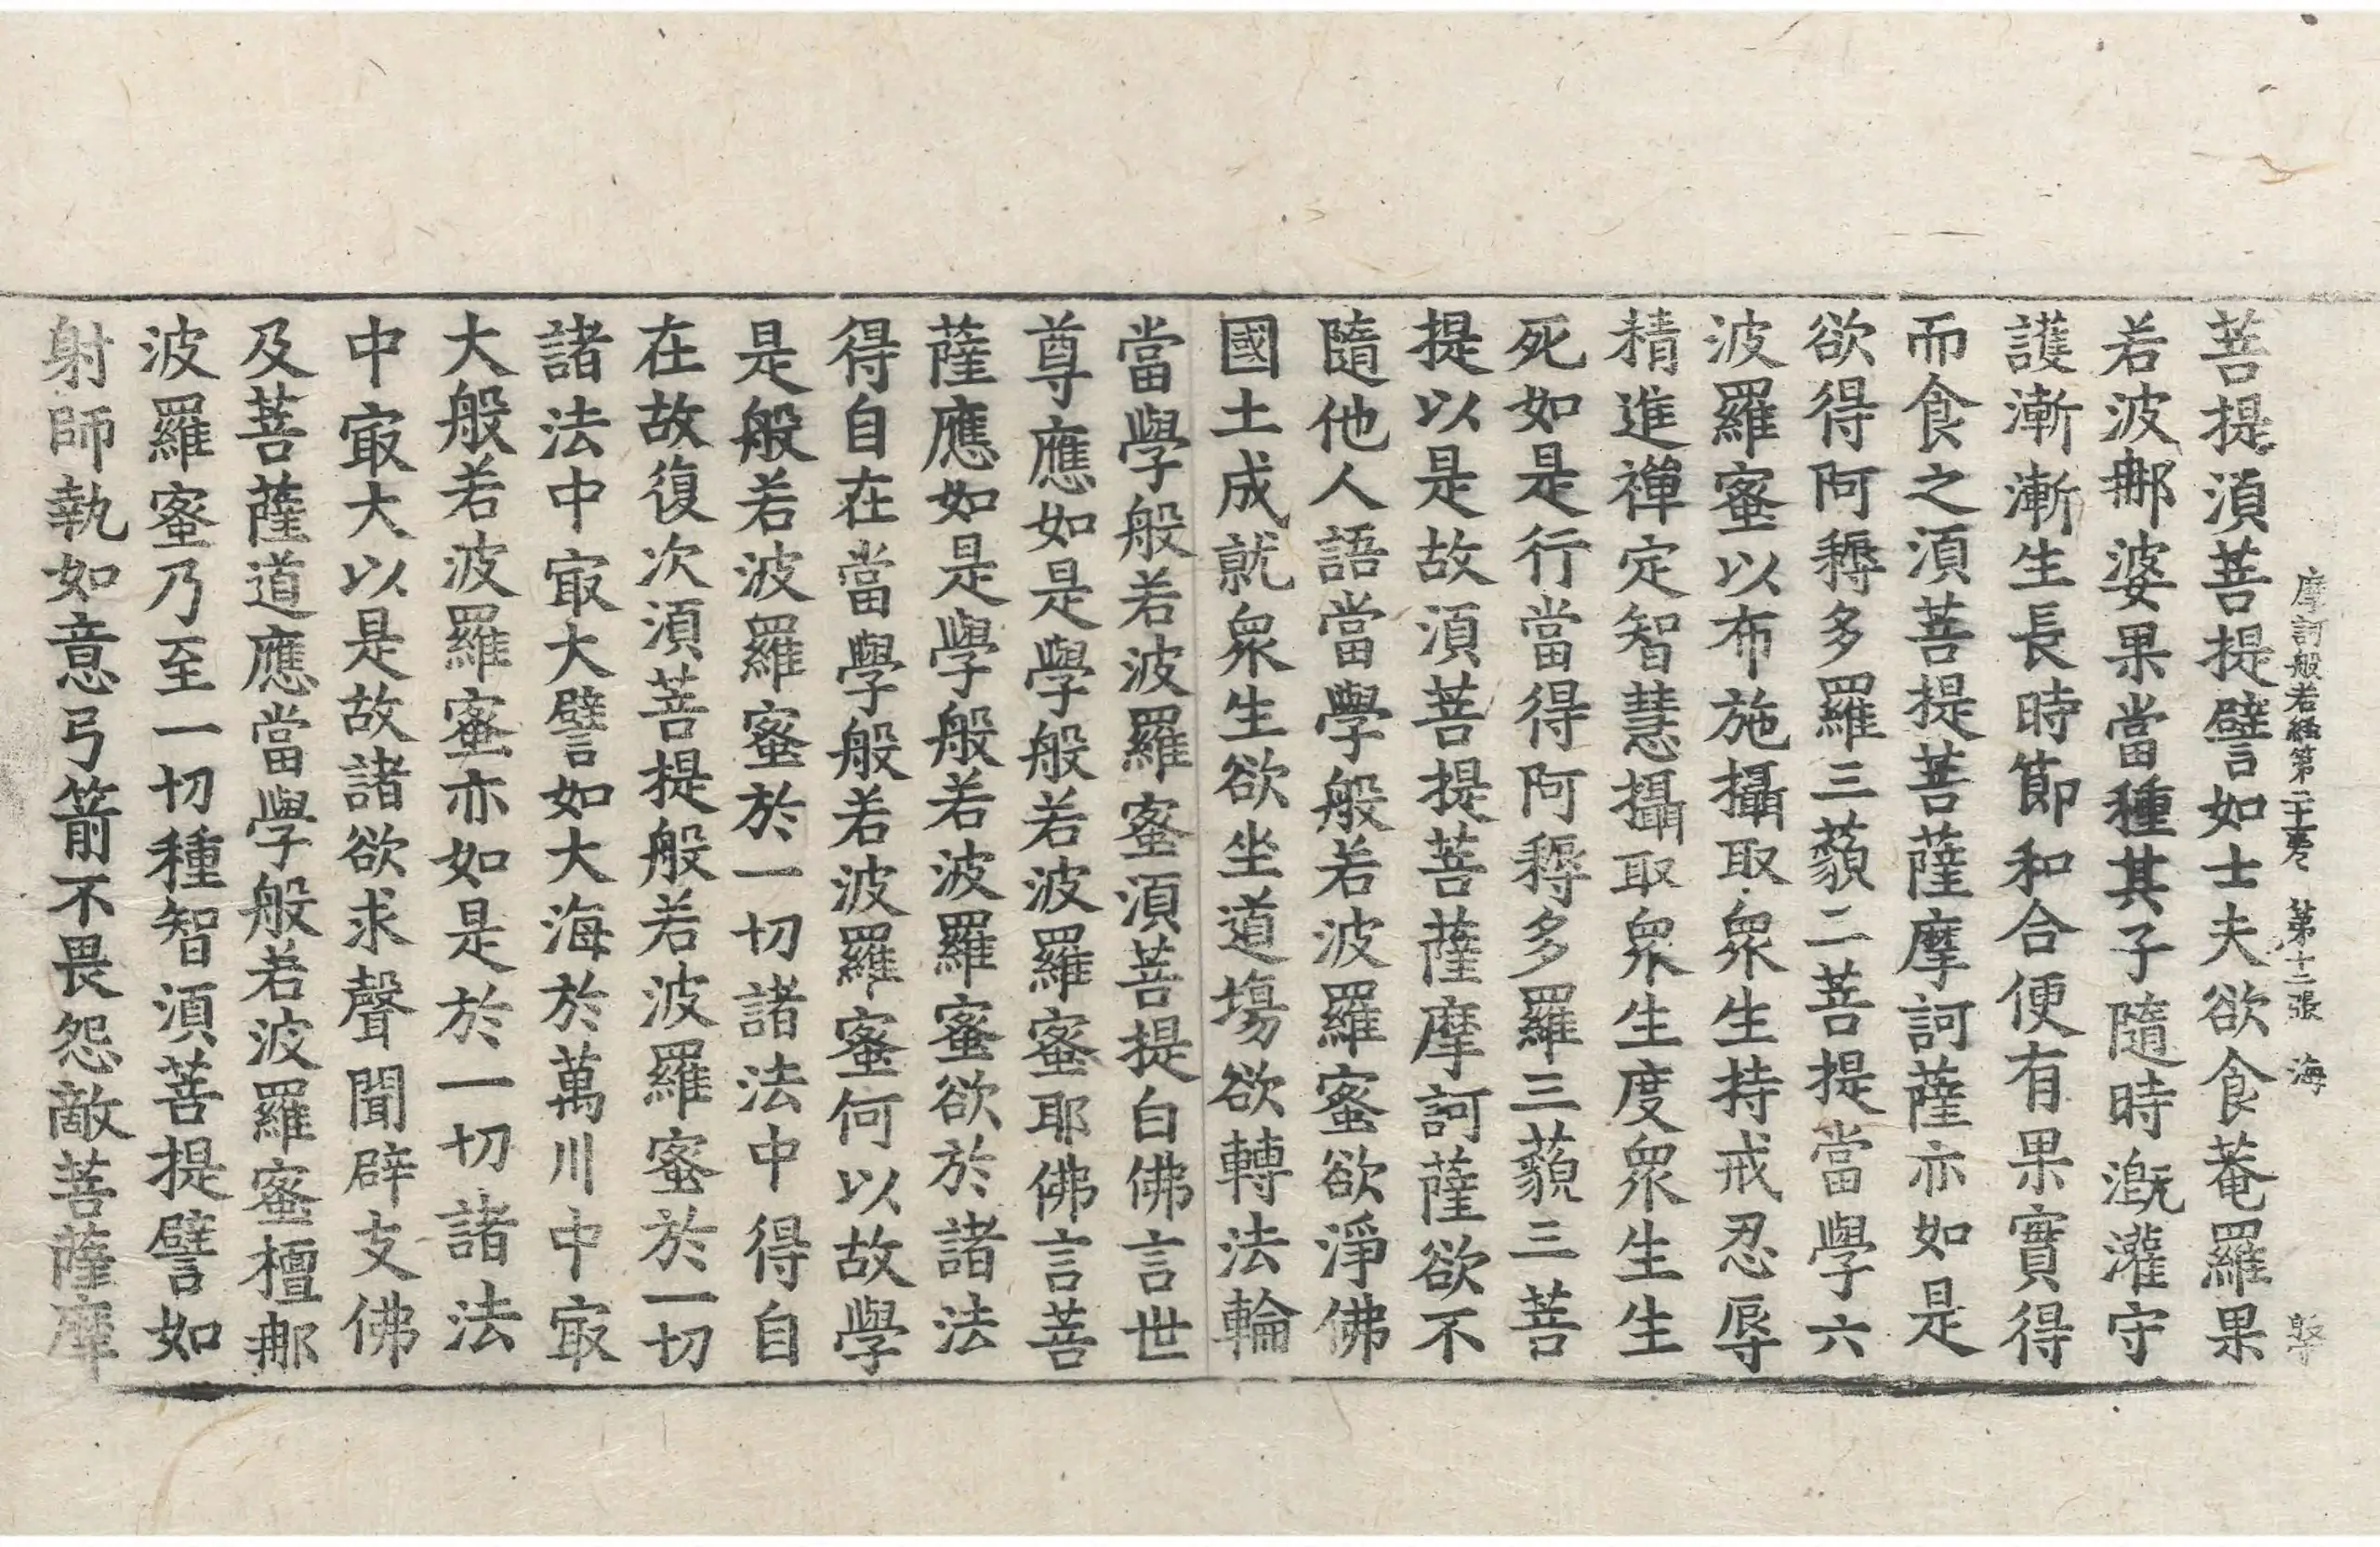 菩提須菩提譬如士夫欲食菴羅果
若波𨚗婆果當種其子隨時漑灌守
護漸漸生長時節和合便有果實得
而食之須菩提菩薩摩訶薩亦如是
欲得阿耨多羅三藐二菩提當學六
波羅蜜以布施攝取衆生持戒忍辱
精進禪定智慧攝取衆生度衆生生
死如是行當得阿耨多羅三藐三菩
提以是故須菩提菩薩摩訶薩欲不
隨他人語當學般若波羅蜜欲淨佛
國土成就衆生欲坐道場欲轉法輪
當學般若波羅蜜須菩提白佛言世
尊應如是學般若波羅蜜耶佛言菩
薩應如是學般若波羅蜜欲於諸法
得自在當學般若波羅蜜何以故學
是般若波羅蜜於一切諸法中得自
在故復次須菩提般若波羅蜜於一切
諸法中㝡大譬如大海於萬川中㝡
大般若波羅蜜亦如是於一切諸法
中㝡大以是故諸欲求聲聞辟支佛
及菩薩道應當學般若波羅蜜檀𨚗
波羅蜜乃至一切種智須菩提譬如
射師執如意弓箭不畏怨敵菩薩摩
摩訶般若經第二十卷 第十二張 海